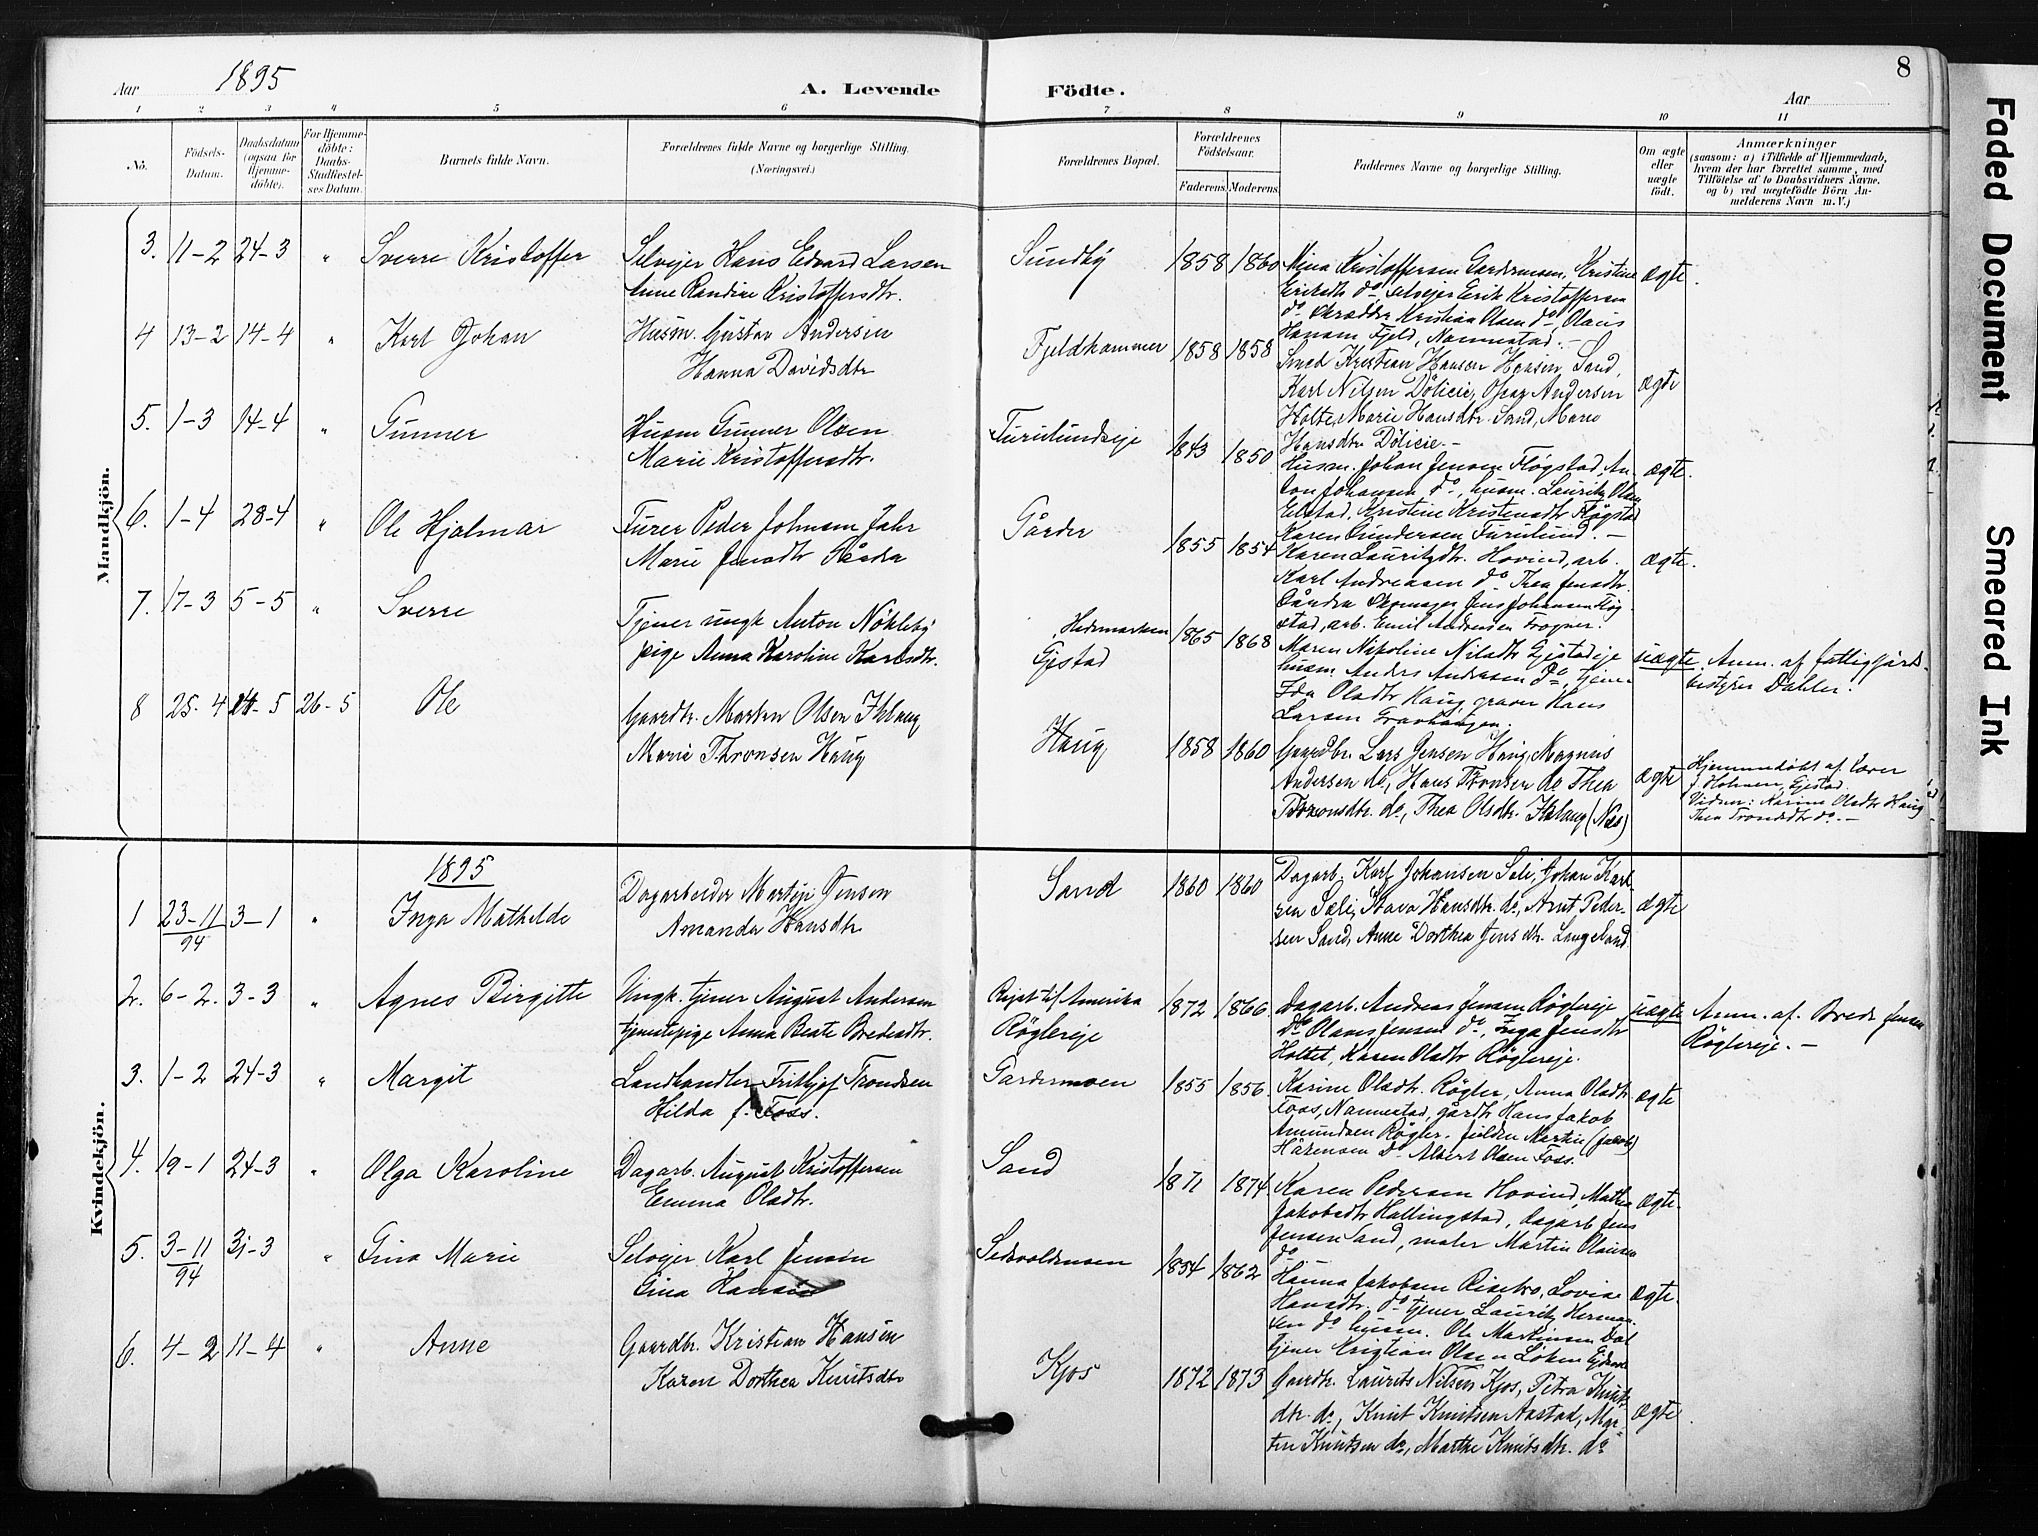 8
Aar 1895
A. Levende Födte.
Aar
1 2 3 4 5 6 7 8 9 10 11
No.
Födsels-Datum.
Daabsdatum (ogsaa for Hjemme-döbte).
For Hjemme-döbte: Daabs-Stadfæstel-ses Datum.
Barnets fulde Navn.
Forældrenes fulde Navne og borgerlige Stilling. (Næringsvei.)
Forældrenes Bopæl.
Forældrenes Födselsaar.
Faderens. Moderens.
Faddernes Navne og borgerlige Stilling.
Om ægte eller uægte födt.
Anmærkninger
(saasom: a) i Tilfælde af Hjemmedaab,
hvem der har forrettet samme, med
Tilföielse af to Daabsvidners Navne.
og b) ved uægtefödte Börn An-
melderens Navn m. V.)
Mandkjön.
3. 11-2 24-3 " Sverre Kristoffer
Selvejer Hans Edvard Larsen
Anne Randine Kristoffersdtr.
Sundby 1858 1860
Nina Kristoffersen Gardermoen, Kristine
Eriksdtr do, selvejer Erik Kristoffersen
do Skrædder Kristian Olsen do, Olaus
Hansen Fjeld, Nannestad. -
ægte.
4 13-2 14-4 " Karl Johan
Husm. Gustav Andersen
Hanna Davidsdtr
Fjeldhammer 1858 1858
Smed Kristian Hansen Sand,
Karl Nilsen Dölieie, Andersen
Holte, Marie Hansdtr. Sand, Maren
Hansdtr Dölieie. -
ægte
5. 1-3 14-4 " Gunner
Husm Gunner Olsen
Marie Kristoffersdtr.
Furulundseje 1843 1850
Husm. Johan Jensen Flögstad, An-
ton Johansen do, husm. Lauritz Olsen
Elstad, Kristine Kristensdtr Flögstad
Karen Gundersen Furulund. -
ægte.
6. 1-4 28-4 " Ole Hjalmar
Furer Peder Johnsen Jahr
Marie Jensdtr Gårder
Gårder 1855 1854
Karen Lauritzdtr. Hovind, arb.
Karl Andreasen do Thea Jensdtr.
Gårder Skomager Jens Johansen Flög-
stad, arb. Emil Andersen Frogner.
ægte.
7. 17-3 5-5 " Sverre
Tjener ungk Anton Nökleby
pige Anna Karoline Karlsdtr.
Hedemarken
Gjestad 1865 1868
Maren Nikoline Nilsdtr Gjestadeje
husm Anders Andersen do, tjener
Ida Olsdtr Haug, graver Hans
Larsen Gravhaugen.
uægte Anm. af fattiggårds-
bestyrer Dahler.
8 25-4 24-5 26-5 Ole
Gaardbr. Morten Olsen Ihlang
Marie Thronsen Haug
Haug 1858 1860
Gaardbr. Lars Jensen Haug, Magnus
Andersen do, Hans Tronsen do Thea
Tronsdtr. do, Thea Olsdtr. Ihlang (Næs)
ægte
Hjemmedöbt af Lærer
J. Holmen, Gjestad.
Vidner: Karine Olsdtr Haug
Thea Tronsdtr do. -
Kvindekjön.
1895
1 23-11/94 3-1 " Inga Mathilde
Dagarbeider Martin Jensen
Amanda Hansdtr
Sand 1860 1860
Dagarb. Karl Johansen Sæli, Johan Karl-
sen Sæli, Stava Hansdtr. do, Arnt Peder-
sen Sand, Anne Dorthea Jensdtr. Langeland.
ægte
2. 6-2. 3-3 " Agnes Birgitte
Ungk. tjener August Andersen
tjenestepige Anna Beate Bredesdtr.
Rejst til Amerika
Röglereje 1872 1866
Dagarb. Andreas Jensen Röglereje
do Olaus Jensen do, Inga Jensdtr
Holtet, Karen Olsdtr Röglereje.
uægte Anm. af. Brede Jensen
Röglereje. -
3. 1-2 24-3 " Margit
Landhandler Frithjof Trondsen
Hilda f. Foss.
Gardermoen 1855 1856
Karine Olsdtr. Rögler, Anna Olsdtr.
Foss, Nannestad, gårdbr Hans Jakob
Amundsen Rögler. Martin (Jakob)
do Albert Olsen Foss.
ægte
4. 19-1 24-3 " Olga Karoline
Dagarb. August Kristoffersen
Emma Olsdtr.
Sand 1871 1874
Karen Pedersen Hovind, Mathea
Jakobsdtr Hallingstad, dagarb Jens
Jensen Sand, maler Martin Olausen
do
ægte.
5. 3-11/94 31-3 " Gina Marie
Selvejer Karl Jensen
Gina Hansen
Sessvoldmoen 1854 1862
Hanna Jakobsen Risebro, Lovise
Hansdtr. do tjener Lauritz Herman-
sen do husm. Ole Martinsen Dal
tjener Kristian Olsen Löken
ægte.
6. 4-2 11-4 " Anne
Gaardbr. Kristian Hansen
Karen Dorthea Knutsdtr
Kjos 1872 1873
Gaardbr. Laurits Nilsen Kjos, Petra Knuts-
dtr. do, Knut Knutsen Aastad, Mar-
tin Knutsen do, Marthe Knutsdtr. do
ægte.
Faded Document
Smeared Ink